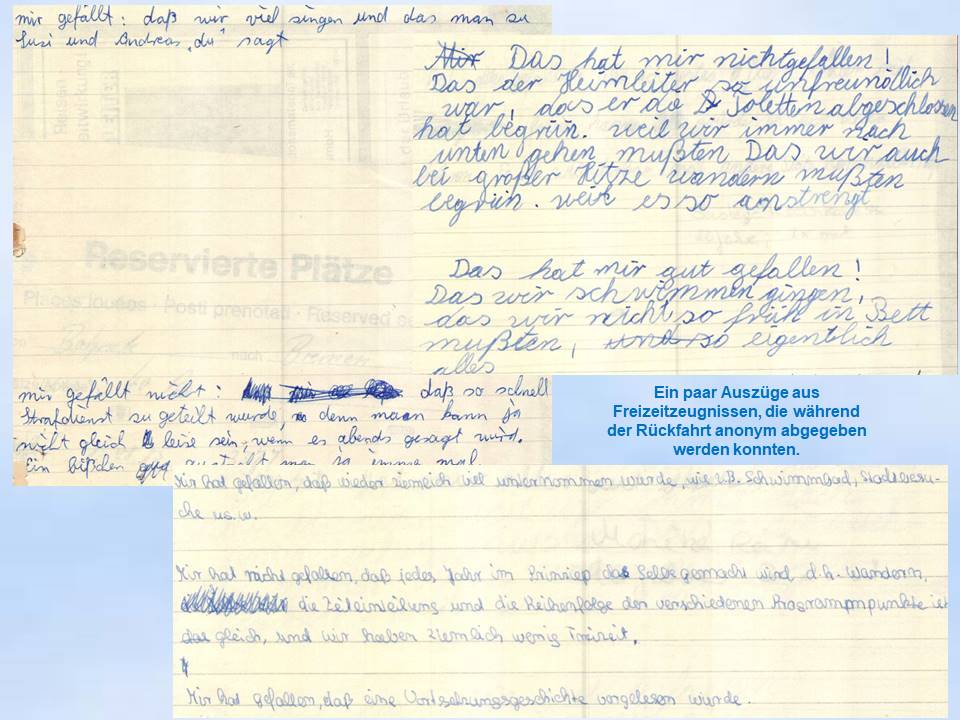 mir gefällt: daß wir viel singen und das man zu
Susi und Andreas „du“ sagt
Mir Das hat mir nichtgefallen!
Das der Heimleiter so unfreundlich
war, das er do Toletten abgeschlossen
hat begrün. weil wir immer nach
unten gehen mußten Das wir auch
bei großer Hitze wandern mußten
begrün. weil es so anstrengt
Das hat mir gut gefallen!
Das wir schwimmen gingen,
das wir nicht so früh in Bett
mußten, und so eigentlich
alles
Reservierte Plätze
Places louées · Posti prenotati · Reserved se
nach Bremen
mir gefällt nicht: daß so schnell
Strafdienst zu geteilt wurde, denn maan kann ja
nicht gleich leise sein, wenn es abends gesagt wird.
Ein bißchen man ja immer mal
Ein paar Auszüge aus
Freizeitzeugnissen, die während
der Rückfahrt anonym abgegeben
werden konnten.
Mir hat gefallen, daß wieder ziemlich viel unternommen wurde, wie z.B. Schwimmbad, Stadtbesu-
che us.w.
Mir hat nicht gefallen, daß jedes Jahr im Prinziep das Selbe gemacht wird d.h. Wandern,
die Zeiteinteilung und die Reihenfolge der verschiedenen Programmpunkte ist
das gleich, und wir haben ziemlich wenig Freizeit.
Mir hat gefallen, daß eine Vortsetzungsgeschichte vorgelesen wurde.